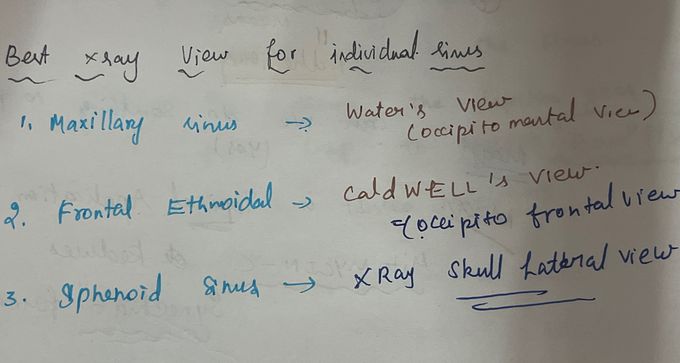 Best xray View for individual sinus
1. Maxillary sinus → Water's view
(occipito mental view)
2. Frontal Ethmoidal → caldWELL's view.
(occipito frontal view
3. Sphenoid sinus → XRay skull Lateral view